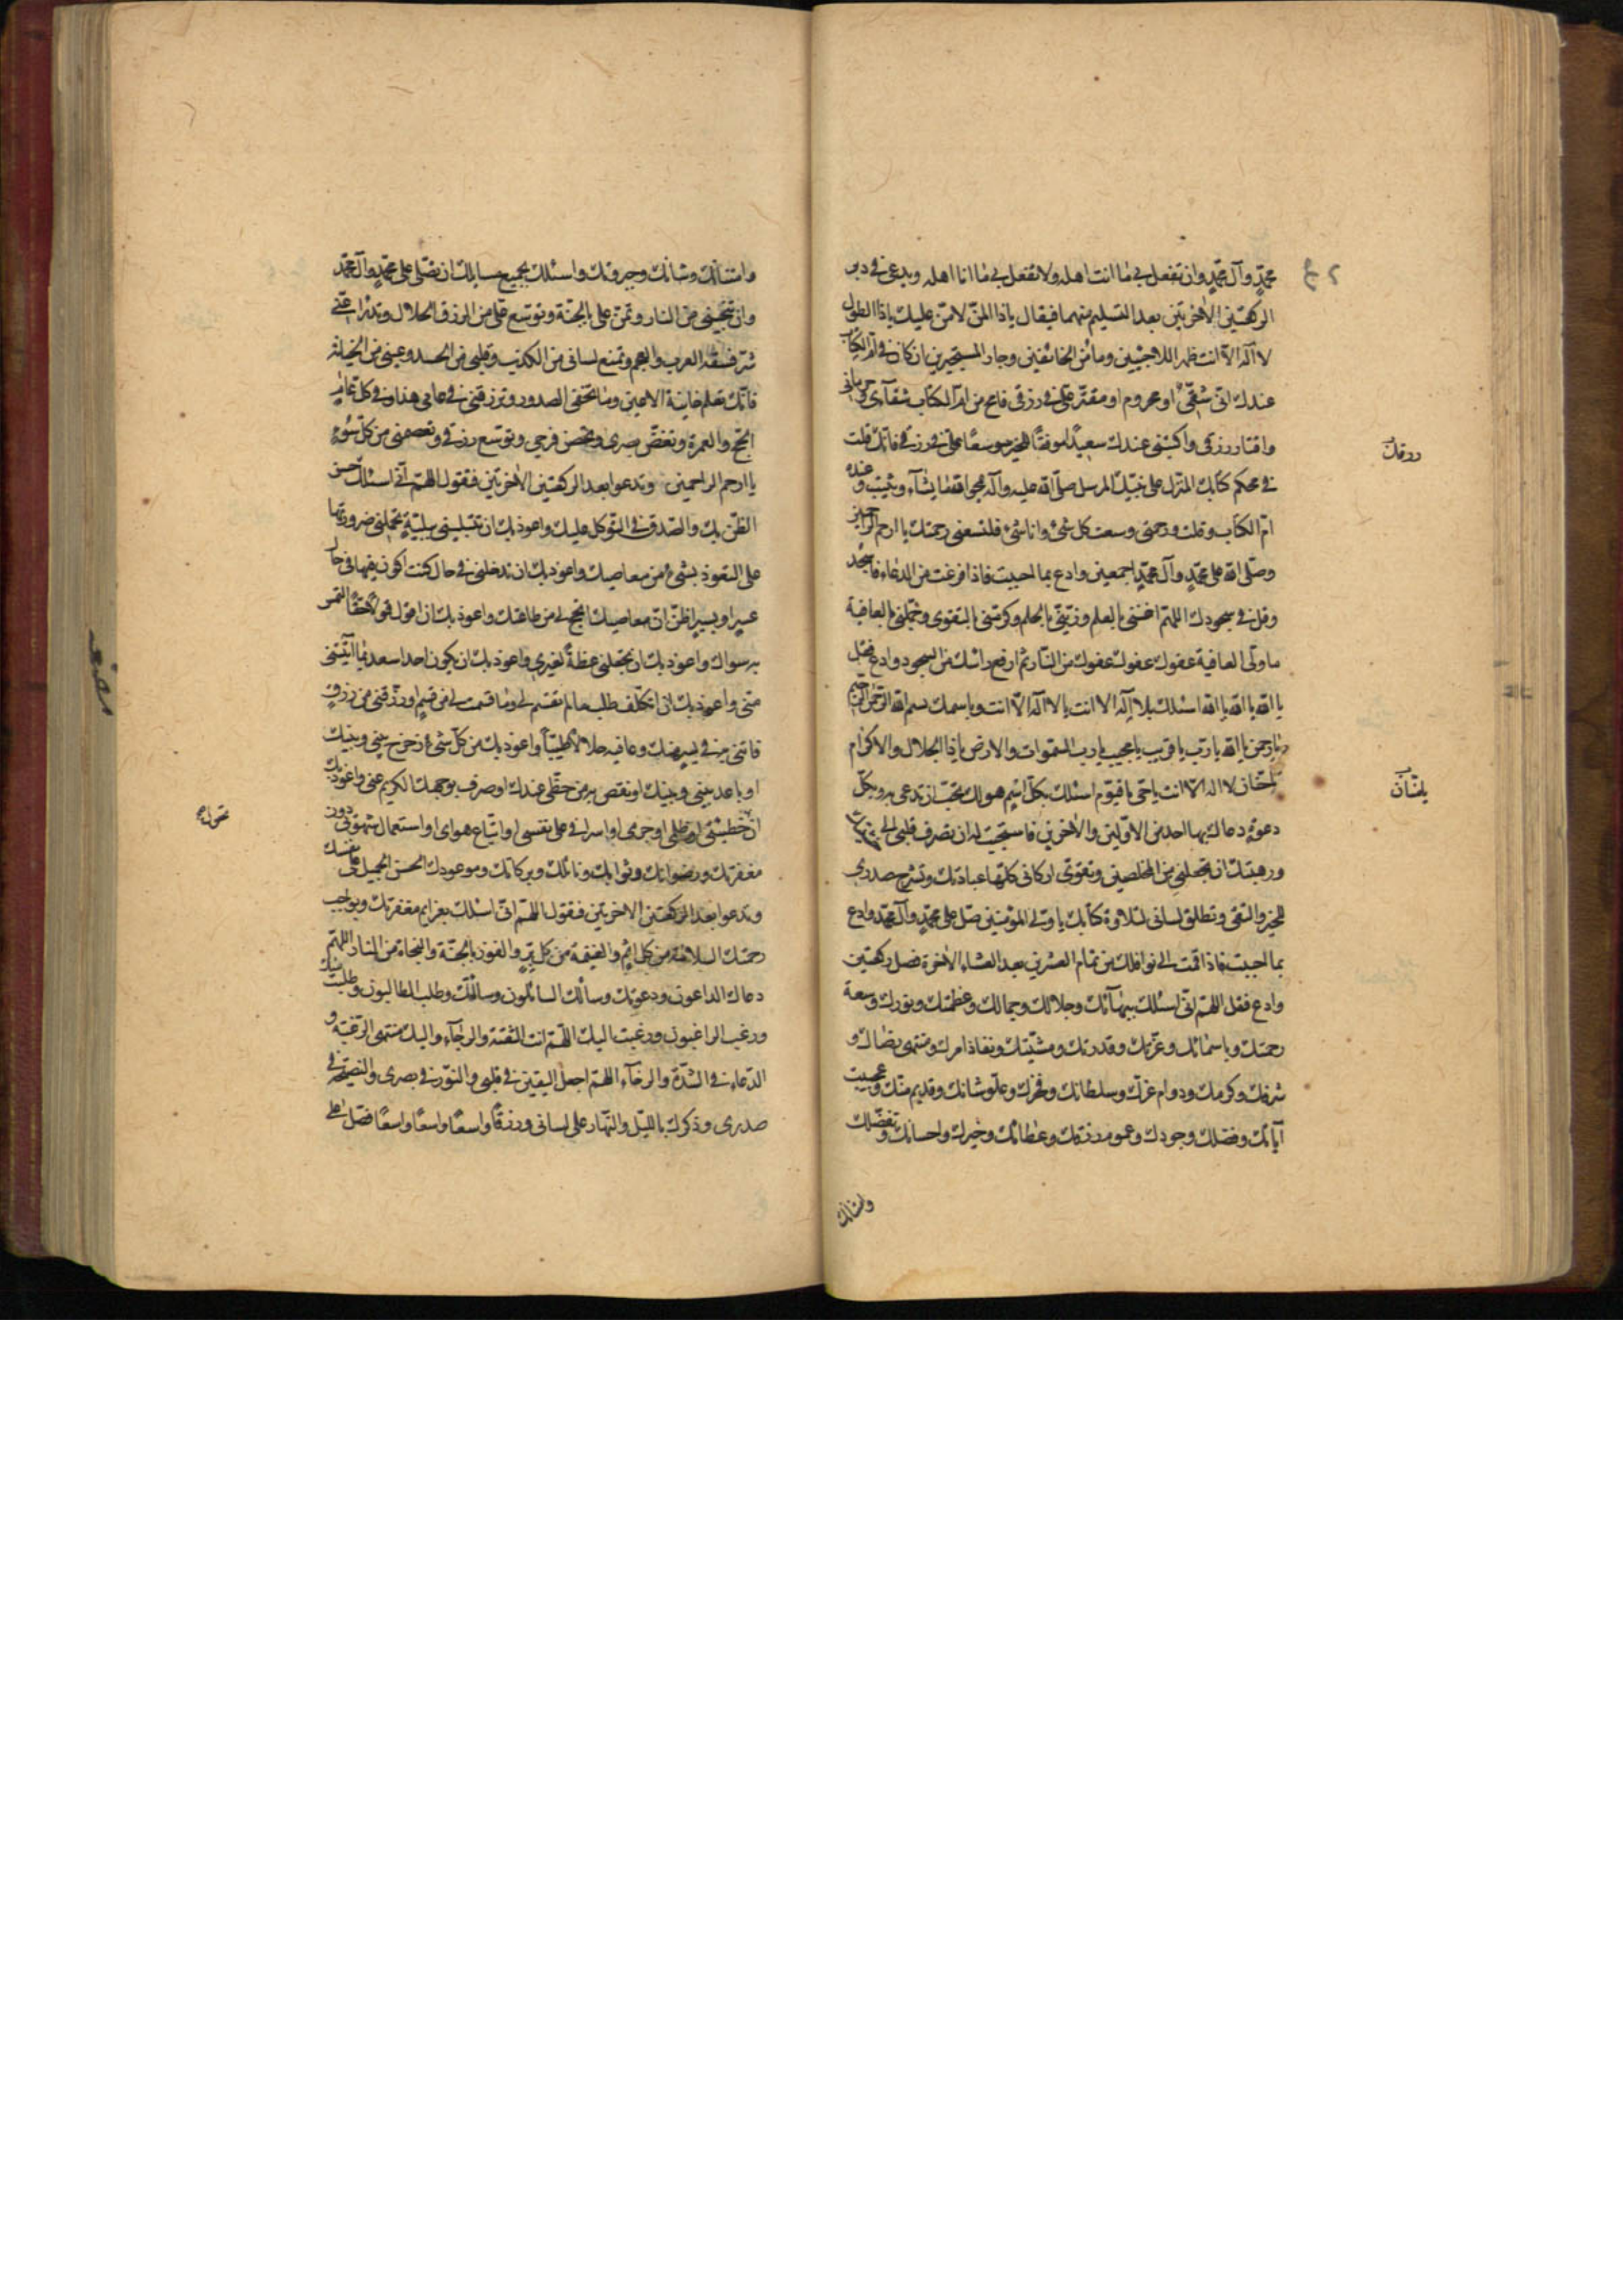 محمّدٍ وآل محمّدٍ وان تفعل بى ما انت اهله ولا تفعل بى ما انا اهله ويدعى فى دبر
الركعتين الاخريتين بعد التسليم منهما فيقال ياذا المنّ لا منّ عليك ياذا الطول
لا اله الّا انت ظهر اللاجئين ومأمن الخائفين وجار المستجيرين ان كان فى امّ الكتاب
عندك انّى شقىّ او محروم او مقتّر علىّ فى رزقى فامح من امّ الكتاب شقآئى وحرمانى
واقتار رزقى واكتبنى عندك سعيدًا موفقًا للخير موسعًا علىّ فى رزقى فانّك قلت
رزقك
فى محكم كتابك المنزل على نبيّك المرسل صلّى الله عليه وآله يمحو الله ما يشآء ويثبت وعنده
امّ الكتاب وقلت ورحمتى وسعت كل شئ وانا شئ فلتسعنى رحمتك يا ارحم الراحمين
وصلّى الله على محمّدٍ وآل محمّدٍ اجمعين وادع بما احببت فاذا فرغت من الدعاء فاسجد
وقل فى سجودك اللهمّ اغننى بالعلم وزيّنّى بالحلم وكرّمنى بالتقوى وجمّلنى بالعافية
يا ولّى العافية عفوك عفوك من النّار ثم ارفع رأسك من السجود وادع فقل
يا الله يا الله يا الله اسئلك بلا اله الا انت يا لا اله الّا انت وباسمك بسم الله الرحمن الرحيم
يا رحمن يا الله يا ربّ يا قريب يا مجيب يا رب السموات والارض ياذا الجلال والاكرام
لا اله الّا انت يا حىّ يا قيّوم اسئلك بكلّ اسمٍ هو لك تحبّ ان تدعى به وبكلّ
دعوةٍ دعاك بها احد من الاوّلين والاخرين فاستجبت له ان تصرف قلبى الى خشيتك
ورهبتك وان تجعلنى من المخلصين وتقوّى اركانى كلّها لعبادتك وتشرح صدرى
للخير والتقى وتطلق لسانى لتلاوة كتابك يا ولى المؤمنين صلّ على محمّدٍ وآل محمّد وادع
بما احببت فاذا قمت الى نوافلك من تمام العشرين بعد العشاء الاخرة فصل ركعتين
وادع فقل اللهمّ انّى اسئلك ببهآئك وجلالك وجمالك وعظمتك ونورك وسعة
رحمتك وباسمائك وعزّتك وقدرتك ومشيّتك ونفاذ امرك ومنتهى رضاك و
شرفك وكرمك ودوام عزّك وسلطانك وفخرك وعلوّ شانك وقديم منّك وعجيب
آياتك وفضلك وجودك وعموم رزقك وعطائك وخيرك واحسانك وتفضّلك
وامتنانك
وامتنانك وشانك وجبروتك واسئلك بجميع مسايلك ان تصّلى على محمّدٍ وآل محمّد
وان تنجّينى من النار وتمنّ علىّ بالجنّة وتوسّع علىّ من الرزق الحلال وتدرأ عنّى
شرّ فسقة العرب والعجم وتمنع لسانى من الكذب وقلبى من الحسد وعينى من الخيانة
فانّك تعلم خاينة الاعين وما تخفى الصدور وترزقنى فى عامى هذا وفى كل عامٍ
الحجّ والعمرة وتغضّ بصرى وتحصن فرجى وتوسّع رزقى وتعصمنى من كلّ سوءٍ
يا ارحم الراحمين وتدعوا بعد الركعتين الاخريتين فتقول اللهمّ انّى اسئلك حسن
الظنّ بك والصدق فى التّوكل عليك واعوذ بك ان تبتلينى ببليّةٍ تحملنى ضرورتها
على التعوّذ بشئ من معاصيك واعوذ بك ان تدخلنى فى حالٍ كنت اكون فيها فى حال
عسرٍ او يسرٍ اظنّ انّ معاصيك انجح لى من طاعتك واعوذ بك ان اقول قولًا حقًّا التمس
به سواك واعوذ بك ان تجعلنى عظةً لغيرى واعوذ بك ان يكون احد اسعد بما آتيتنى
منّى واعوذ بك ان اتكلّف طلب ما لم تقسم لى وما قسمت لى من قسمٍ او رزقتنى من رزقٍ
فأتنى به فى يسرٍ منك وعافيه حلالًا طيّبًا واعوذ بك من كلّ شئ زحزح بينى وبينك
او باعد بينى وبينك او نقص به من حظّى عندك او صرف بوجهك الكريم عنى واعوذ بك
ان تحول خطيئتى او ظلمى او جرمى او اسرافى على نفسى او اتّباع هواى او استعمال شهوتى دون
مغفرتك ورضوانك وثوابك ونائلك وبركاتك وموعودك الحسن الجميل على نفسك
وتدعوا بعد الركعتين الاخريتين فتقول اللهمّ انّى اسئلك بعزايم مغفرتك وبواجب
رحمتك السلامة من كل اثمٍ والغنيمة من كل برّ والفوز بالجنّة والنجاة من النار اللهمّ
دعاك الداعون ودعوتك وسألك السائلون وسألتك وطلب الطالبون وطلبت اليك
ورغب الراغبون ورغبت اليك اللّهمّ انت الثقة والرجآء واليك منتهى الرّغبة و
الدّعاء فى الشدّة والرخآء اللهمّ اجعل اليقين فى قلبى والنّور فى بصرى والنصيحة فى
صدرى وذكرك بالليل والنّهار على لسانى ورزقًا واسعًا واسعًا واسعًا فصّل على